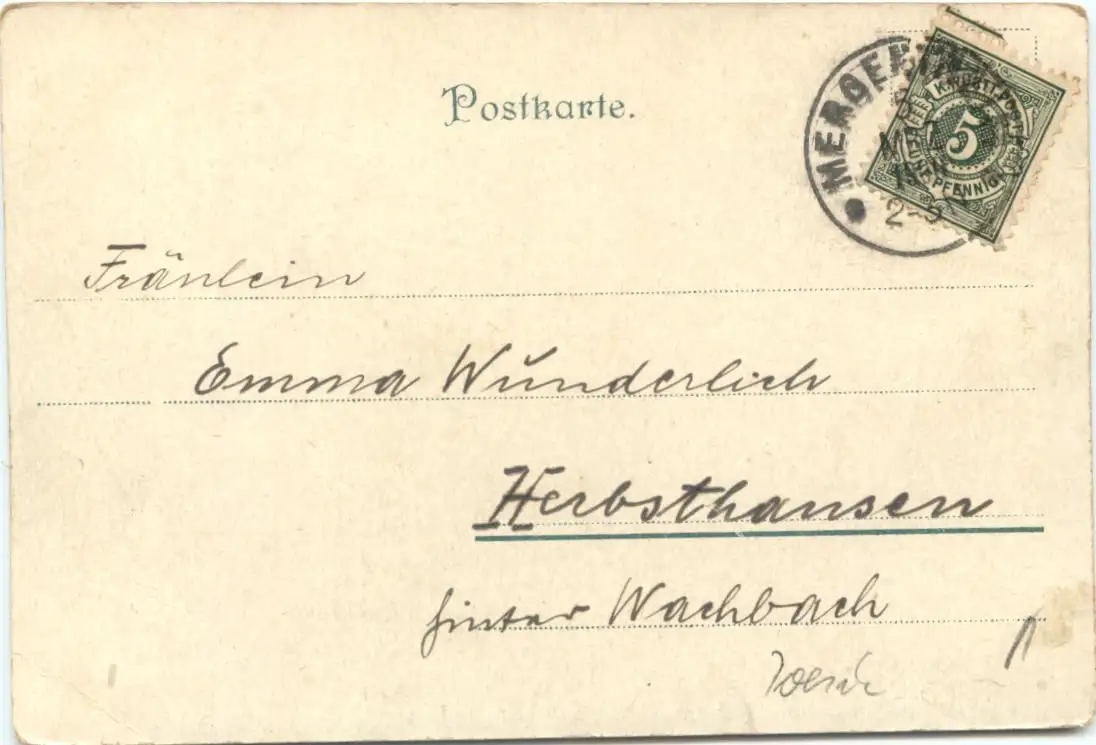 Postkarte.
MERGENTH
K.WÜRTT.POST
5
PFENNIG
2-3
Fräulein
Emma Wunderlich
Herbsthausen
hinter Wachbach